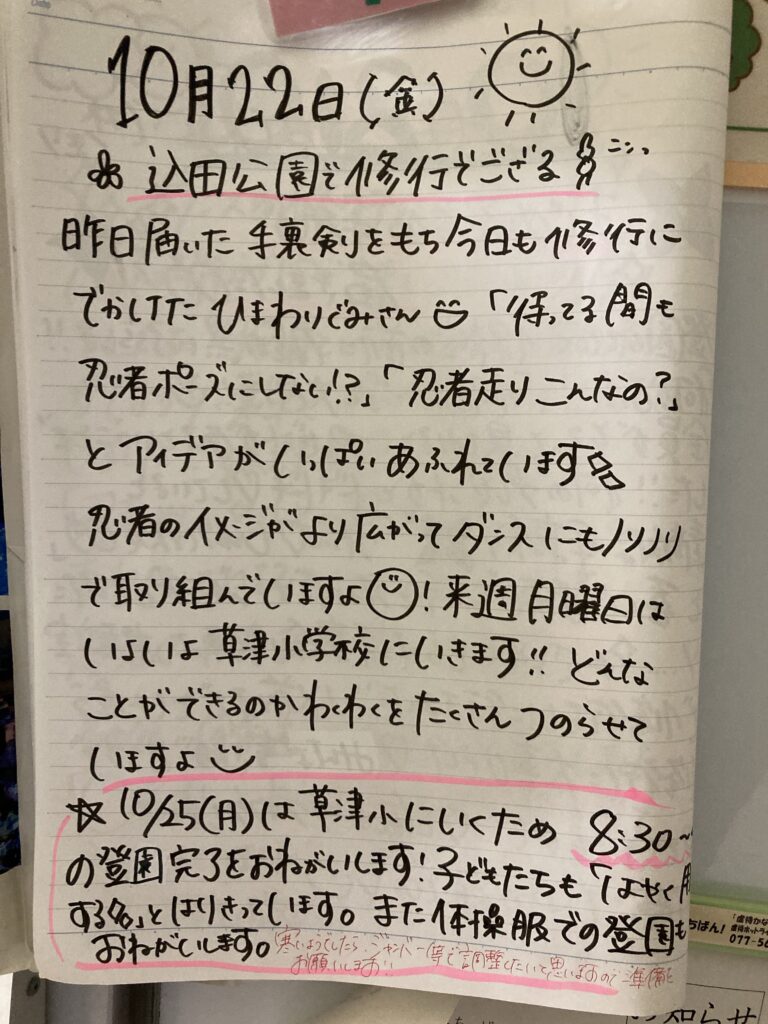 10月22日(金)
込田公園で修行でござる ニンッ
昨日届いた手裏剣をもち今日も修行に
でかけたひまわりぐみさん「待ってる間も
忍者ポーズにしない!?」「忍者走りこんなの?」
とアイデアがいっぱいあふれています
忍者のイメージがより広がってダンスにもノリノリ
で取り組んでいますよ! 来週月曜日は
いよいよ草津小学校にいきます!! どんな
ことができるのかわくわくをたくさんつのらせて
いますよ
☆10/25(月)は草津小にいくため 8:30~
の登園完了をおねがいします!子どもたちも「はやく
する」とはりきっています。また体操服での登園も
おねがいします。(寒いようでしたら、ジャンパー等で調整したいと思いますので準備を
お願いします!!
ちばん!
「虐待かな
虐待ホットライ
077-56
お知らせ